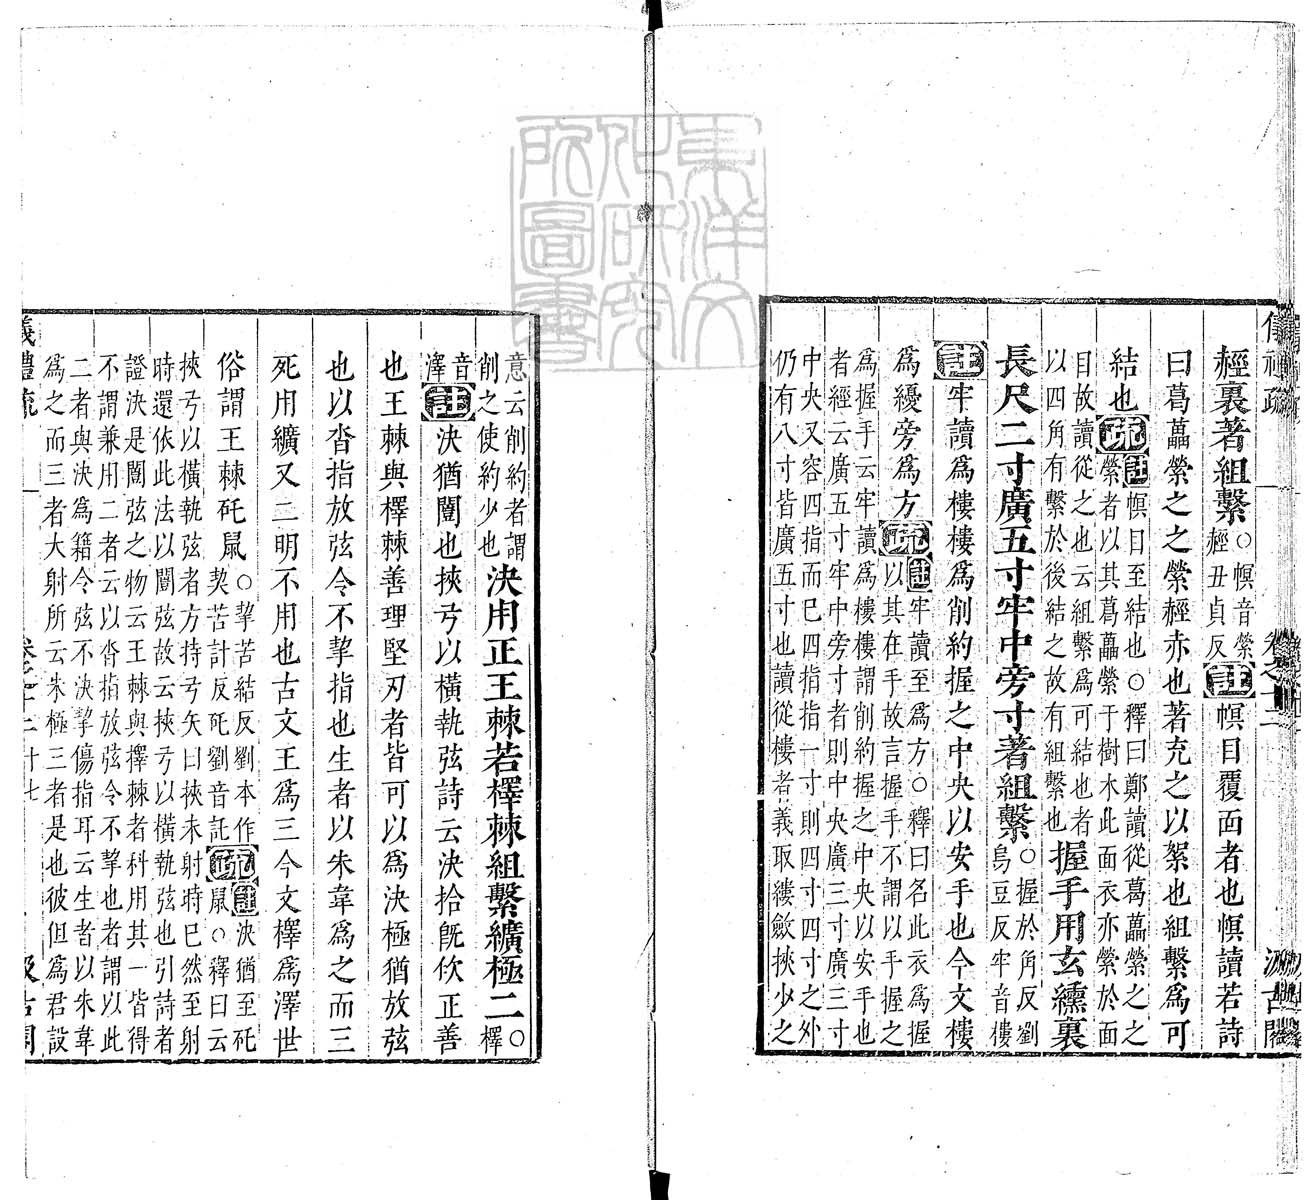 儀禮疏 卷之十二 汲古閣
經裏著組繫○幎音縈
經丑貞反註幎目覆面者也幎讀若詩
曰葛藟縈之之縈經赤也著充之以絮也組繫爲可
結也疏註幎目至結也○釋曰鄭讀從葛藟縈之之
縈者以其葛藟縈于樹木此面衣亦縈於面
目故讀從之也云組繫爲可結也者
以四角有繫於後結之故有組繫也握手用玄纁裏
長尺二寸廣五寸牢中旁寸著組繫○握於角反劉
烏豆反牢音樓
註牢讀爲樓樓爲削約握之中央以安手也今文樓
爲緩旁爲方疏註牢讀至爲方○釋曰名此衣爲握
以其在手故言握手不謂以手握之
爲握手云牢讀爲樓樓謂削約握之中央以安手也
者經云廣五寸牢中旁寸者則中央廣三寸廣三寸
中央又容四指而已四指指一寸則四寸四寸之外
仍有八寸皆廣五寸也讀從樓者義取縷斂挾少之
意云削約者謂
削之使約少也決用正王棘若檡棘組繫纊極二○檡
音澤註決猶闓也挾弓以橫執弦詩云決拾旣佽正善
也王棘與檡棘善理堅刃者皆可以爲決極猶放弦
也以沓指放弦令不挈指也生者以朱韋爲之而三
死用纊又二明不用也古文王爲三今文檡爲澤世
俗謂王棘矺鼠○挈苦結反劉本作
契苦計反矺劉音託疏註決猶至矺
鼠○釋曰云
挾弓以橫執弦者方持弓矢曰挾未射時已然至射
時還依此法以闓弦故云挾弓以橫執弦也引詩者
證決是闓弦之物云王棘與擇棘者科用其一皆得
不謂兼用二者云以沓指放弦令不挈也者謂以此
二者與決爲籍令弦不決挈傷指耳云生者以朱韋
爲之而三者大射所云朱極三者是也彼但爲君設
儀禮疏 卷之十二 十七 汲古閣
東洋文化研究所圖書